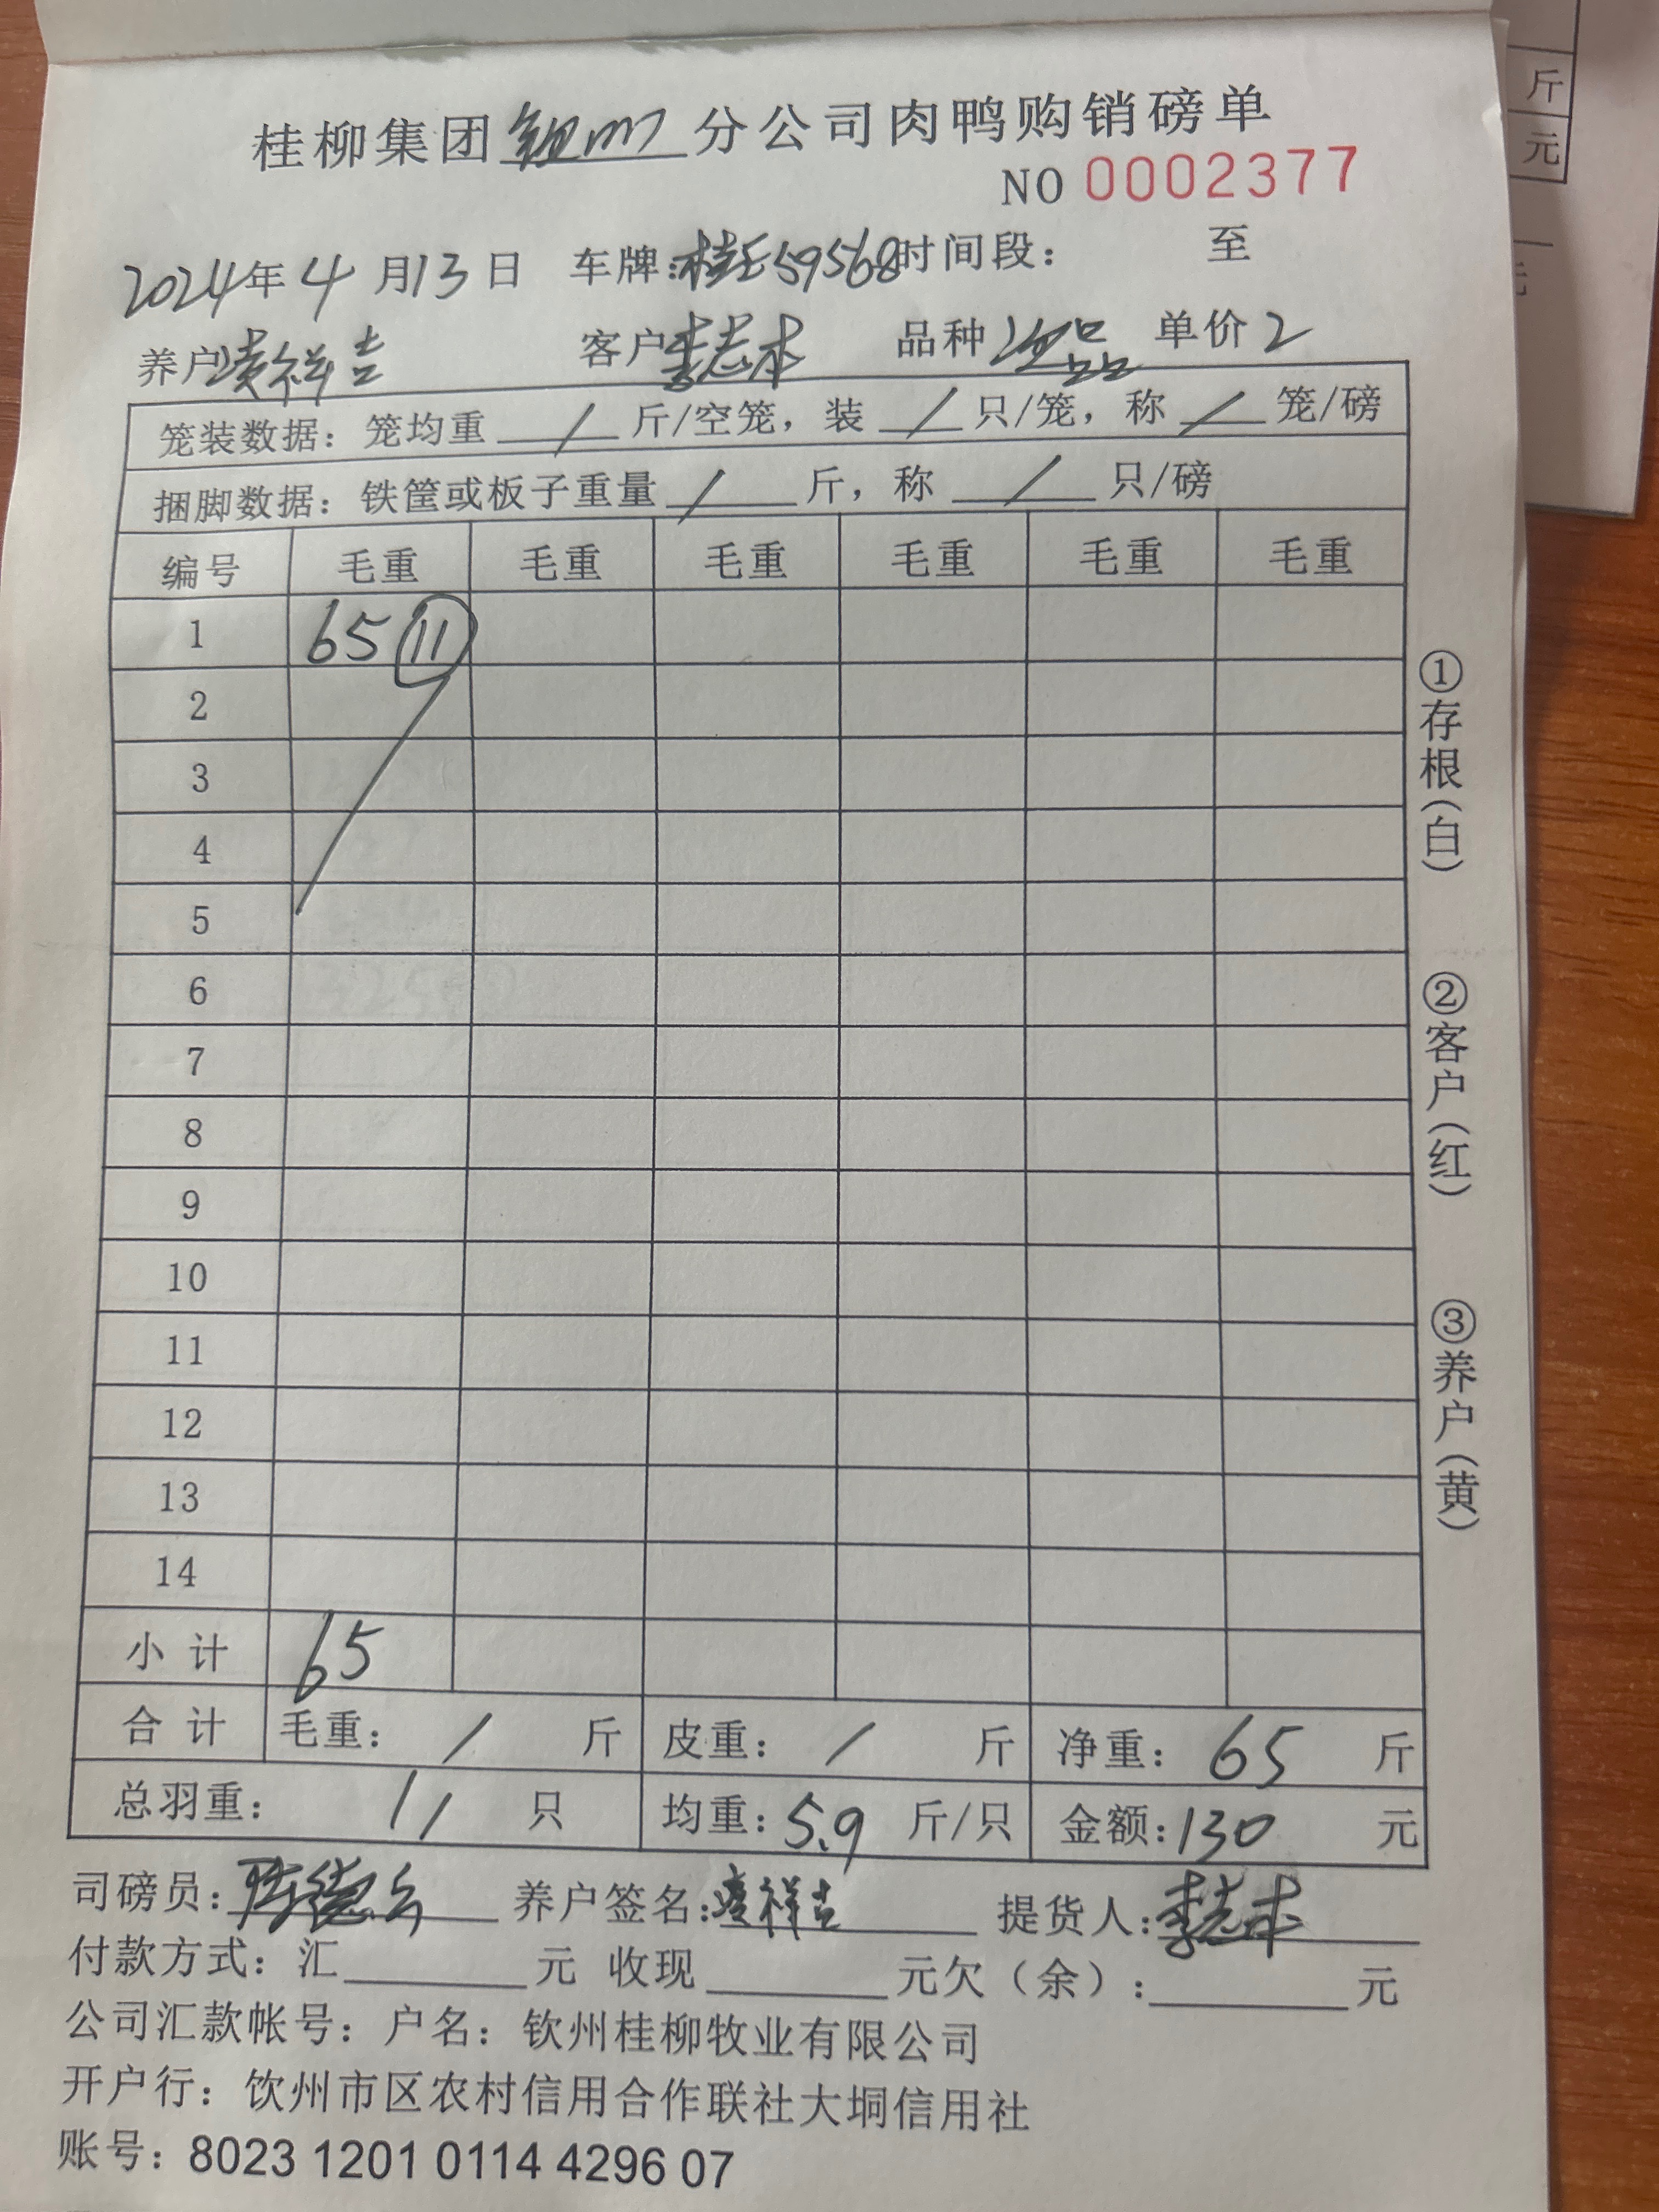 桂柳集团钦州分公司肉鸭购销磅单
NO 0002377
2024年4月13日 车牌:桂E59568时间段: 至
养户凌祥吉 客户李志本 品种次品 单价2
笼装数据:笼均重 / 斤/空笼,装 / 只/笼,称 / 笼/磅
捆脚数据:铁筐或板子重量 / 斤,称 / 只/磅
编号 毛重 毛重 毛重 毛重 毛重 毛重
1 65 ⑪
2
3
4
5
6
7
8
9
10
11
12
13
14
小计 65
合计 毛重: / 斤 皮重: / 斤 净重: 65 斤
总羽重: 11 只 均重:5.9 斤/只 金额:130 元
司磅员:陈德云 养户签名:凌祥吉 提货人:李志本
付款方式:汇____元 收现____元欠(余):____元
公司汇款帐号:户名:钦州桂柳牧业有限公司
开户行:钦州市区农村信用合作联社大垌信用社
账号:8023 1201 0114 4296 07
①存根(白)
②客户(红)
③养户(黄)
斤
元